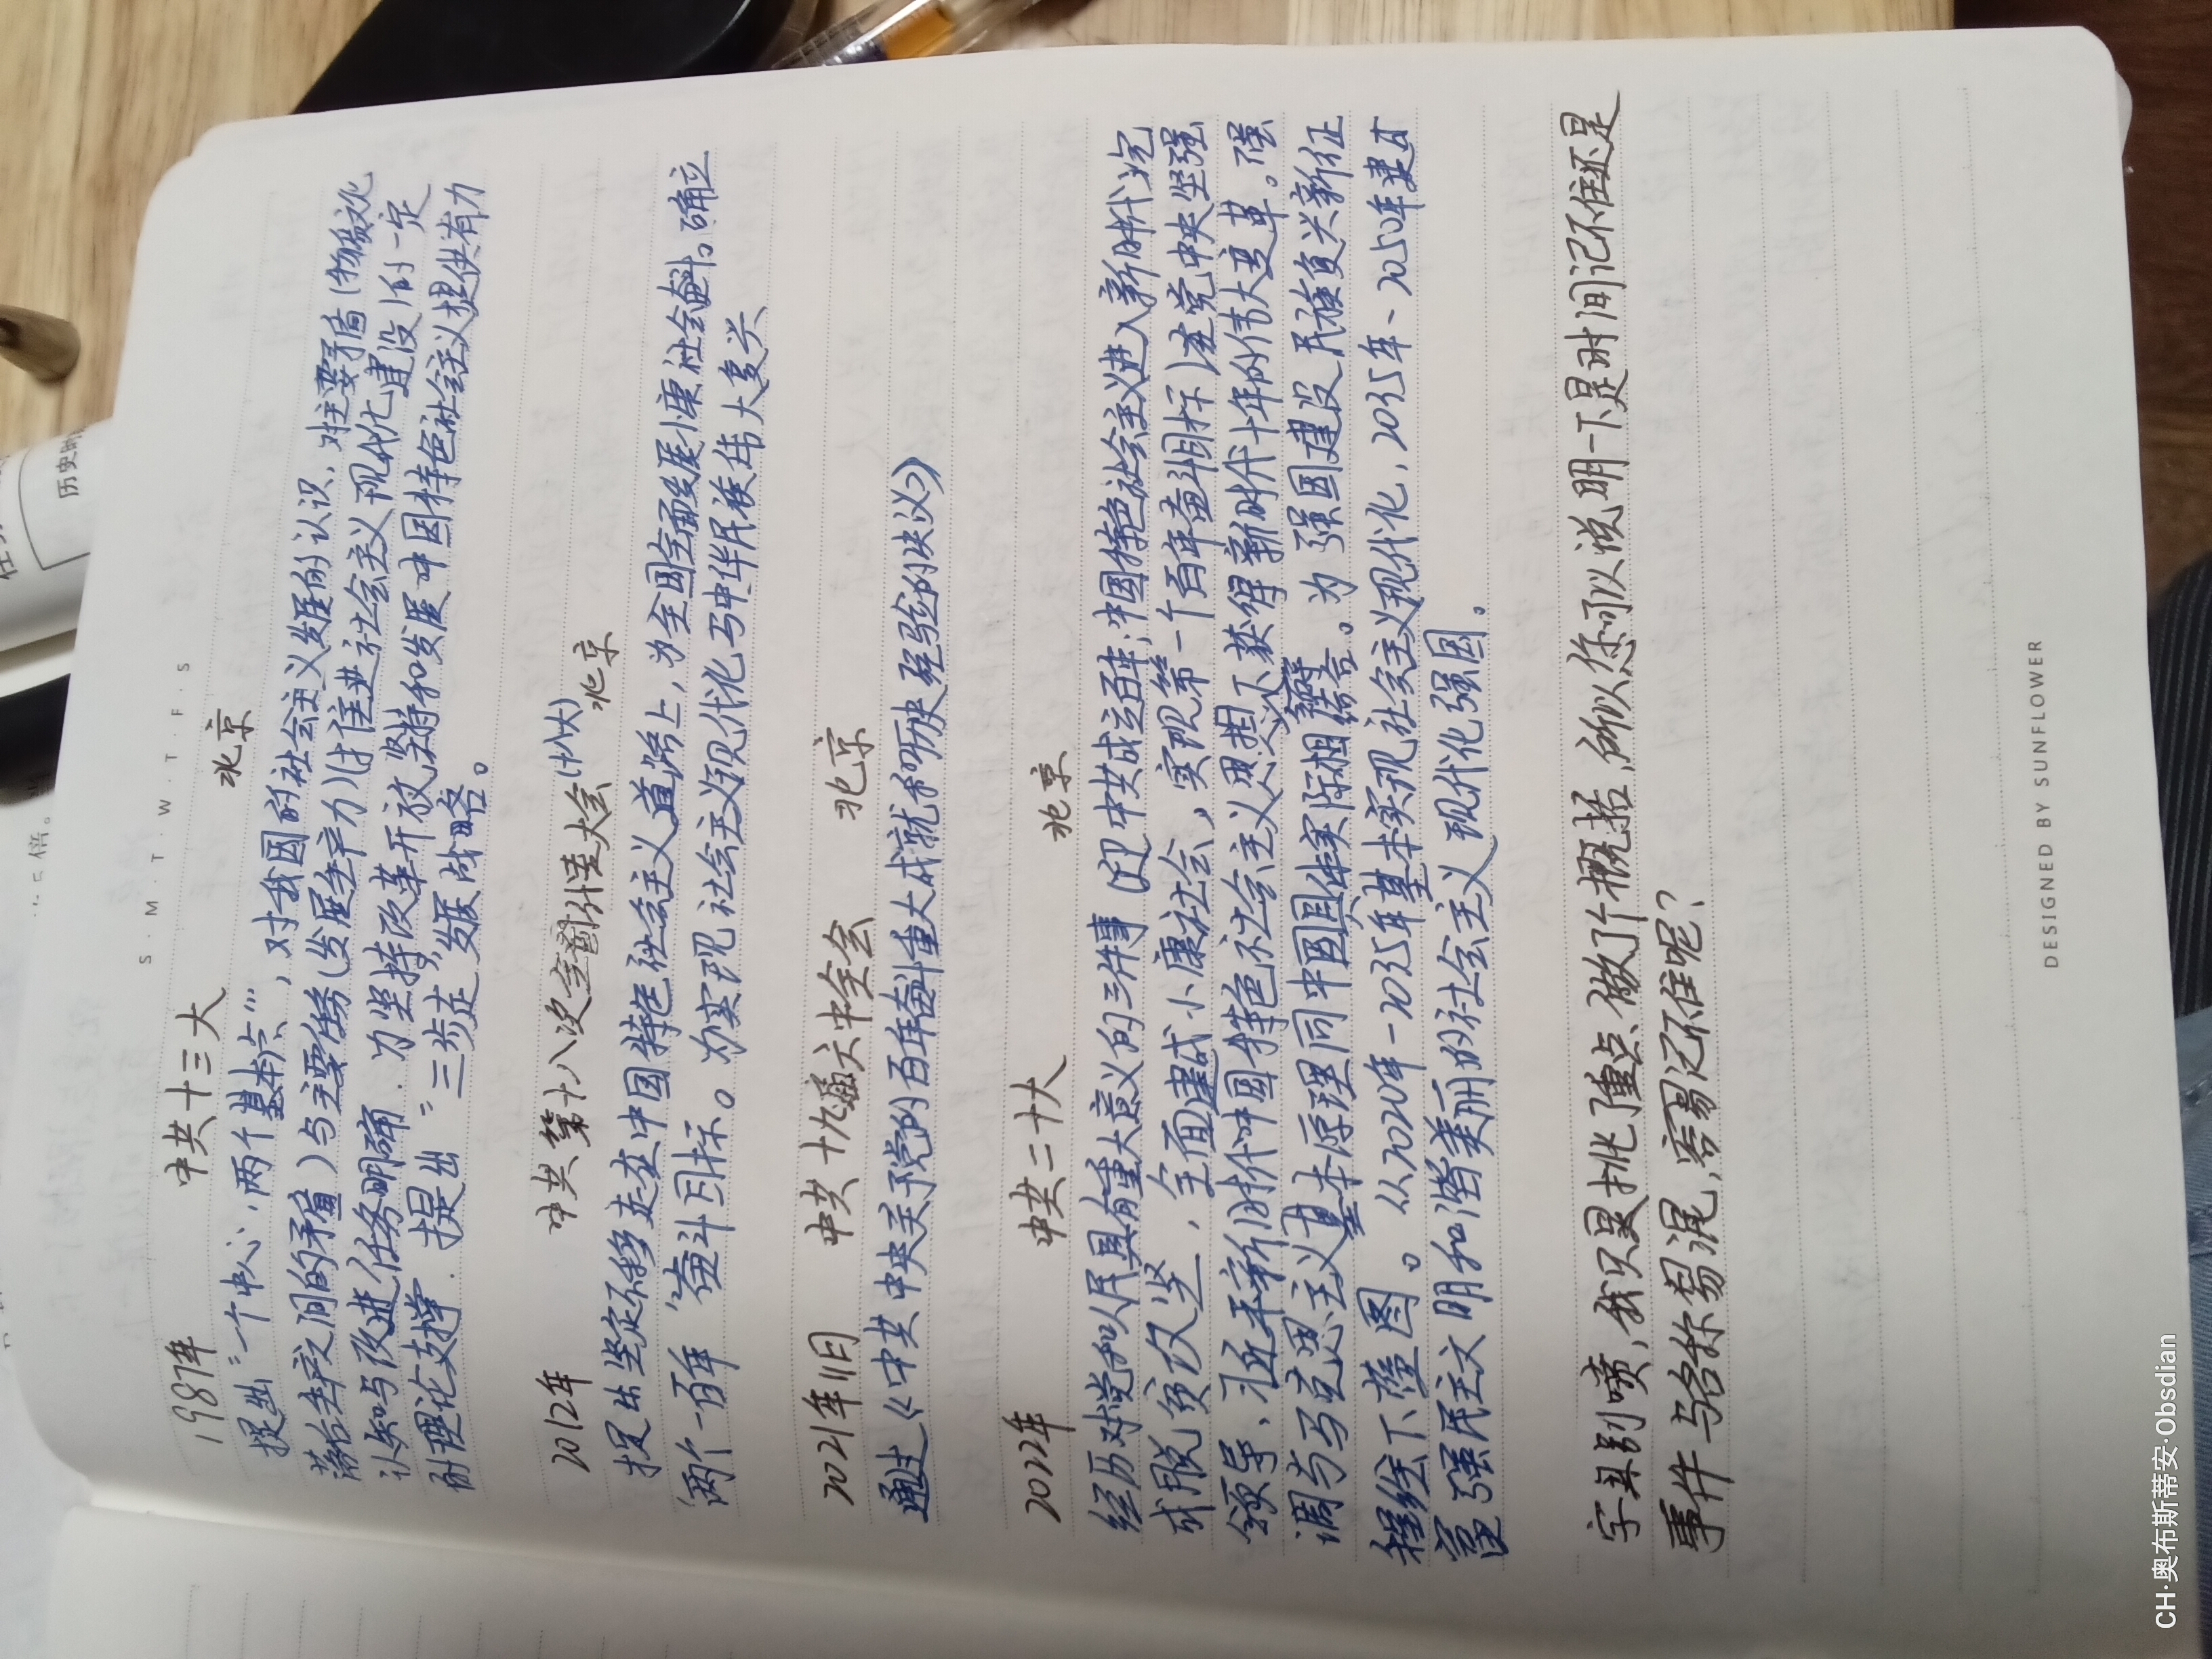 S · M · T · W · T · F · S
1987年 中共十三大 北京
提出"一个中心,两个基本点",对我国的社会主义发展的认识,对主要矛盾(物质文化
落后生产之间的矛盾)与主要任务(发展生产力)(才推进社会主义现代化建设)有一定
认知与改进任务明确.为坚持改革开放坚持和发展中国特色社会主义提供有力
耐理论支撑.提出"三步走"发展战略。
2012年 中共第十八次全国代表大会(十八大) 北京
提出坚定不移走在中国特色社会主义道路上,为全国全面发展小康社会奋斗。确立
"两个一百年"奋斗目标。为实现社会主义现代化与中华民族伟大复兴
2021年11月 中共十九届六中全会 北京
通过《中共中央关于党的百年奋斗重大成就和历史经验的决议》
2022年 中共二十大 北京
经历对党和人民具有重大意义的三件事(迎中共成立百年;中国特色社会主义进入新时代;完
成脱贫攻坚,全面建成小康社会,实现第一个百年奋斗目标)在党中央坚强
领导,习近平新时代中国特色社会主义思想下获得新时代十年的伟大变革。强
调与马克思主义基本原理同中国具体实际相结合。为强国建设民族复兴新征
程绘下蓝图。从2020年-2035年基本实现社会主义现代化,2035年、2050年建成
富强民主文明和谐美丽的社会主义现代化强国。
字丑别喷,我只是挑了重点做了个概括,所以你可以说明一下是时间记不住还是
事件与名称易混,容易记不住呢?
DESIGNED BY SUNFLOWER
历史时
倍。
CH·奥布斯蒂安·Obsdian